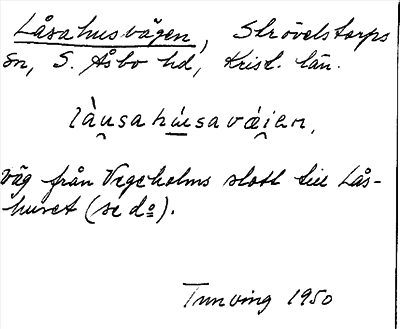 Låsahusvägen, Strövelstorps
sn, S. Åsbo hd, Krist. län.
là̯usahu̱̍savái̯ən,
väg från Vegeholms slott till Lås-
huset (se do).
Tunving 1950